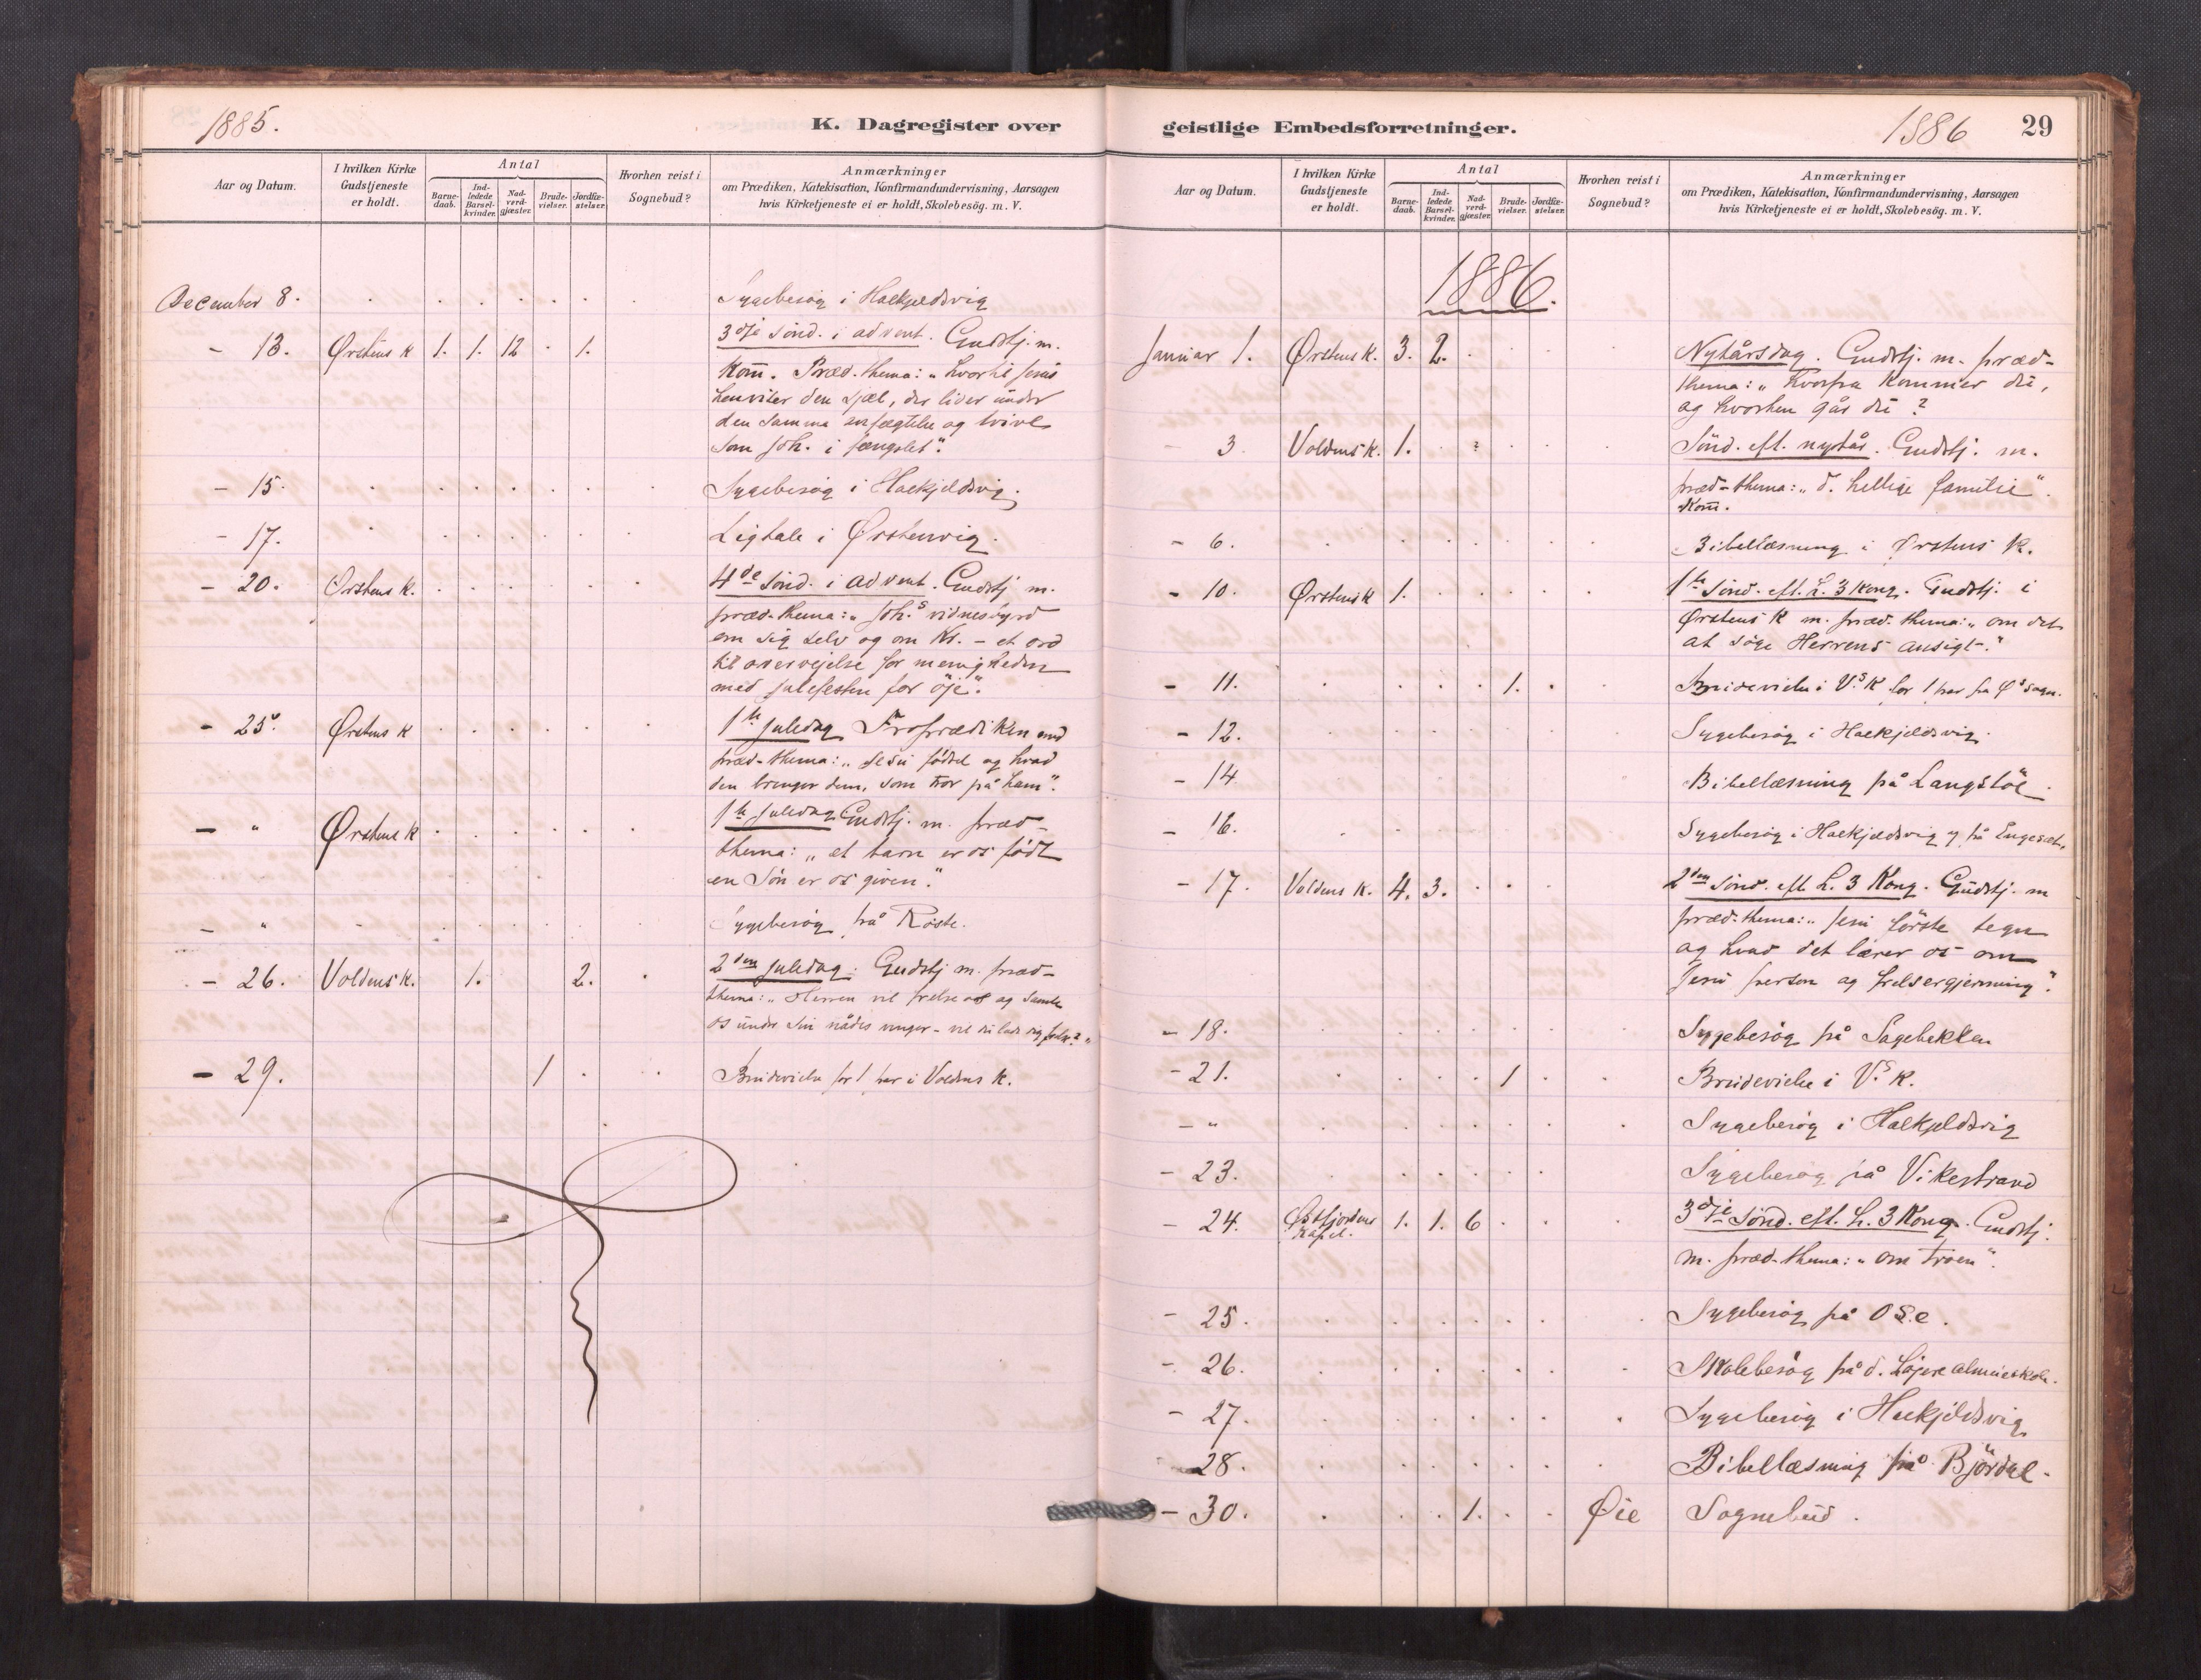 1885.
K. Dagregister over
Aar og Datum.
I hvilken Kirke
Gudstjeneste
er holdt.
Antal
Barne-
daab.
Ind-
ledede
Barsel-
kvinder.
Nad-
verd-
gjæster.
Brude-
vielser.
Jordfæ-
stelser.
Hvorhen reist i
Sognebud?
Anmærkninger
om Prædiken, Katekisation, Konfirmandundervisning, Aarsagen
hvis Kirketjeneste ei er holdt, Skolebesög. m. V.
December 8. Sygebesög i Halkjeldsvig
- 13. Ørstens K 1. 1. 12 1. 3dje sönd. i advent. Gudstj. m.
Kom̄. Præd. thema: "hvortil Jesus
henviser den sjæl, der lider under
den samme anfægtelse og tvivl
som Joh. i fængslet".
- 15. Sygebesög i Halkjeldsvig.
- 17. Ligtale i Ørstenvig.
- 20. Ørstens K. 4de sönd. i advent. Gudstj m.
præd-thema: "Joh.s vidnesbyrd
om sig selv og om Kr. - et ord
til overvejelse for menigheden
med julefesten for öje".
- 25. Ørstens K 1ste juledag Froprædiken med
præd-thema: "Jesu födsel og hvad
den bringer dem, som tror på ham".
- " Ørstens K 1ste juledag Gudstj. m. præd-
thema: "et barn er os födt
en Sön er os given."
- " Sygebesög på Röste.
- 26. Voldens K. 1. 2. 2den juledag. Gudstj m. præd-
thema: "Herren vil frelse os og samle
os under sin nådes vinger - vil du lade dig frelse?"
- 29. 1 Brudevielse for 1 par i Voldens K.
geistlige Embedsforretninger.
1886
29
Aar og Datum.
I hvilken Kirke
Gudstjeneste
er holdt.
Antal
Barne-
daab.
Ind-
ledede
Barsel-
kvinder.
Nad-
verd-
gjæster.
Brude-
vielser.
Jordfæ-
stelser.
Hvorhen reist i
Sognebud?
Anmærkninger
om Prædiken, Katekisation, Konfirmandundervisning, Aarsagen
hvis Kirketjeneste ei er holdt, Skolebesög. m. V.
1886.
Januar 1. Ørstens K. 3. 2. Nytårsdag. Gudstj. m. præd-
thema: "Hvorfra kommer du,
og hvorhen går du?
- 3 Voldens K. 1. Sönd. eft. nytår. Gudstj. m.
præd-thema: "d. hellige familie".
Kom̄.
- 6. Bibellæsning i Ørstens K.
- 10. Ørstens K 1. 1ste sönd. eft. h. 3 kong. Gudstj. i
Ørstens K m. præd. thema: "om det
at söge Herrens ansigt."
- 11. 1. Brudevielse i V.s K for 1 par fra Ø.s sogn.
- 12. Sygebesög i Halkjeldsvig.
- 14 Bibellæsning på Langstöl.
- 16. Sygebesög i Halkjeldsvig og på Engeset.
- 17. Voldens K. 4. 3. 2den sönd. eft h. 3 Kong. Gudstj. m
præd.thema: "Jesu förste tegn
og hvad det lærer os om
Jesu person og frelsergjerning".
- 18. Sygebesög på Sagebakken
- 21. 1 Brudevielse i V.s K.
- " Sygebesög i Halkjeldsvig
- 23. Sygebesög på Vikestrand
- 24. Østfjordens
Kapel. 1. 1. 6 3dje sönd. eft. h. 3 Kong. Gudstj.
m. præd.thema: "om troen".
- 25. Sygebesög på Ose.
- 26. Skolebesög på d. höjere almueskole.
- 27. Sygebesög i Halkjeldsvig
- 28. Bibellæsning på Björdal.
- 30. 1. Øie Sognebud.